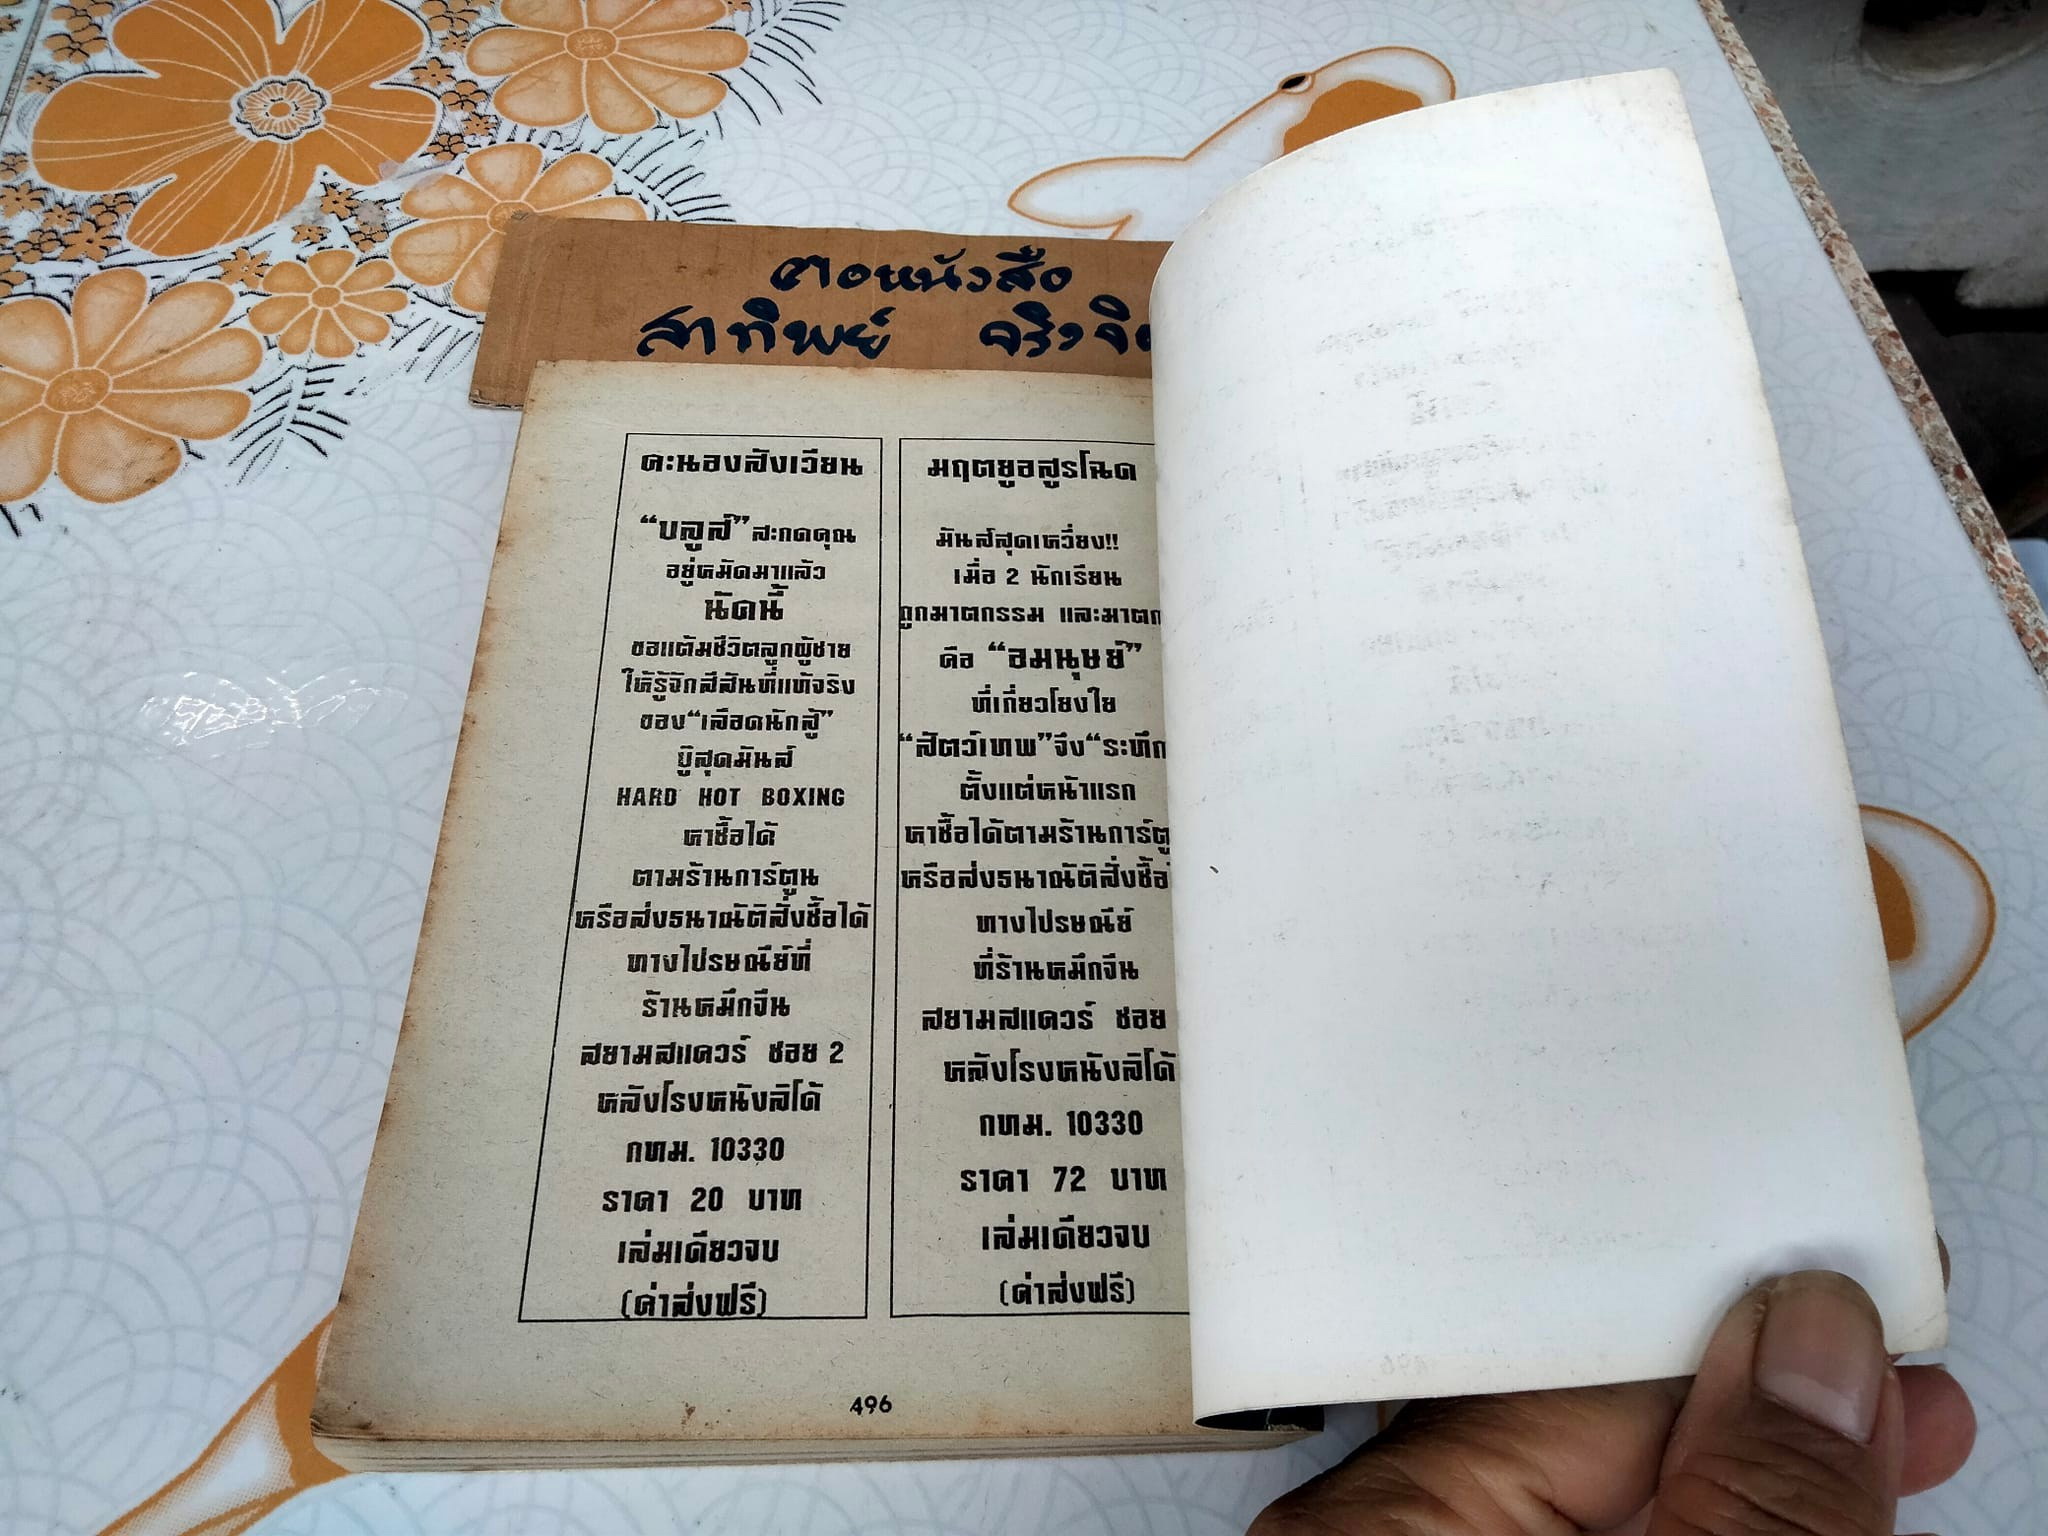 ตอหนังสือ
สาทิพย์ จริงจิ
คะนองสังเวียน
“บลูส์” สะกดคุณ
อยู่หมัดมาแล้ว
นัดนี้
ขอแต้มชีวิตลูกผู้ชาย
ให้รู้จักสีสันที่แท้จริง
ของ“เลือดนักสู้”
ยู๊สุดมันส์
HARD HOT BOXING
หาซื้อได้
ตามร้านการ์ตูน
หรือส่งธนาณัติสั่งซื้อได้
ทางไปรษณีย์ที่
ร้านหมึกจีน
สยามสแควร์ ซอย 2
หลังโรงหนังลิโด้
กทม. 10330
ราคา 20 บาท
เล่มเดียวจบ
(ค่าส่งฟรี)
มฤตยูอสูรโฉด
มันส์สุดเหวี่ยง!!
เมื่อ 2 นักเรียน
ถูกฆาตกรรม และฆาตก
คือ “อมนุษย์”
ที่เกี่ยวโยงใย
“สัตว์เทพ”จึง“ระทึก
ตั้งแต่หน้าแรก
หาซื้อได้ตามร้านการ์ตู
หรือส่งธนาณัติสั่งซื้อ
ทางไปรษณีย์
ที่ร้านหมึกจีน
สยามสแควร์ ซอย
หลังโรงหนังลิโด้
กทม. 10330
ราคา 72 บาท
เล่มเดียวจบ
(ค่าส่งฟรี)
496